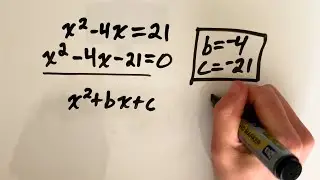 x²-4x=21
x²-4x-21=0
x²+bx+c
b=-4
c=-21